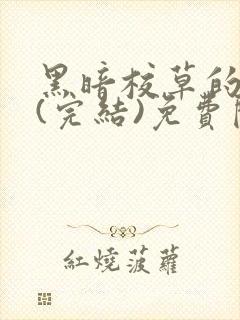 黑暗校草的
(完結)免費
紅燒菠蘿